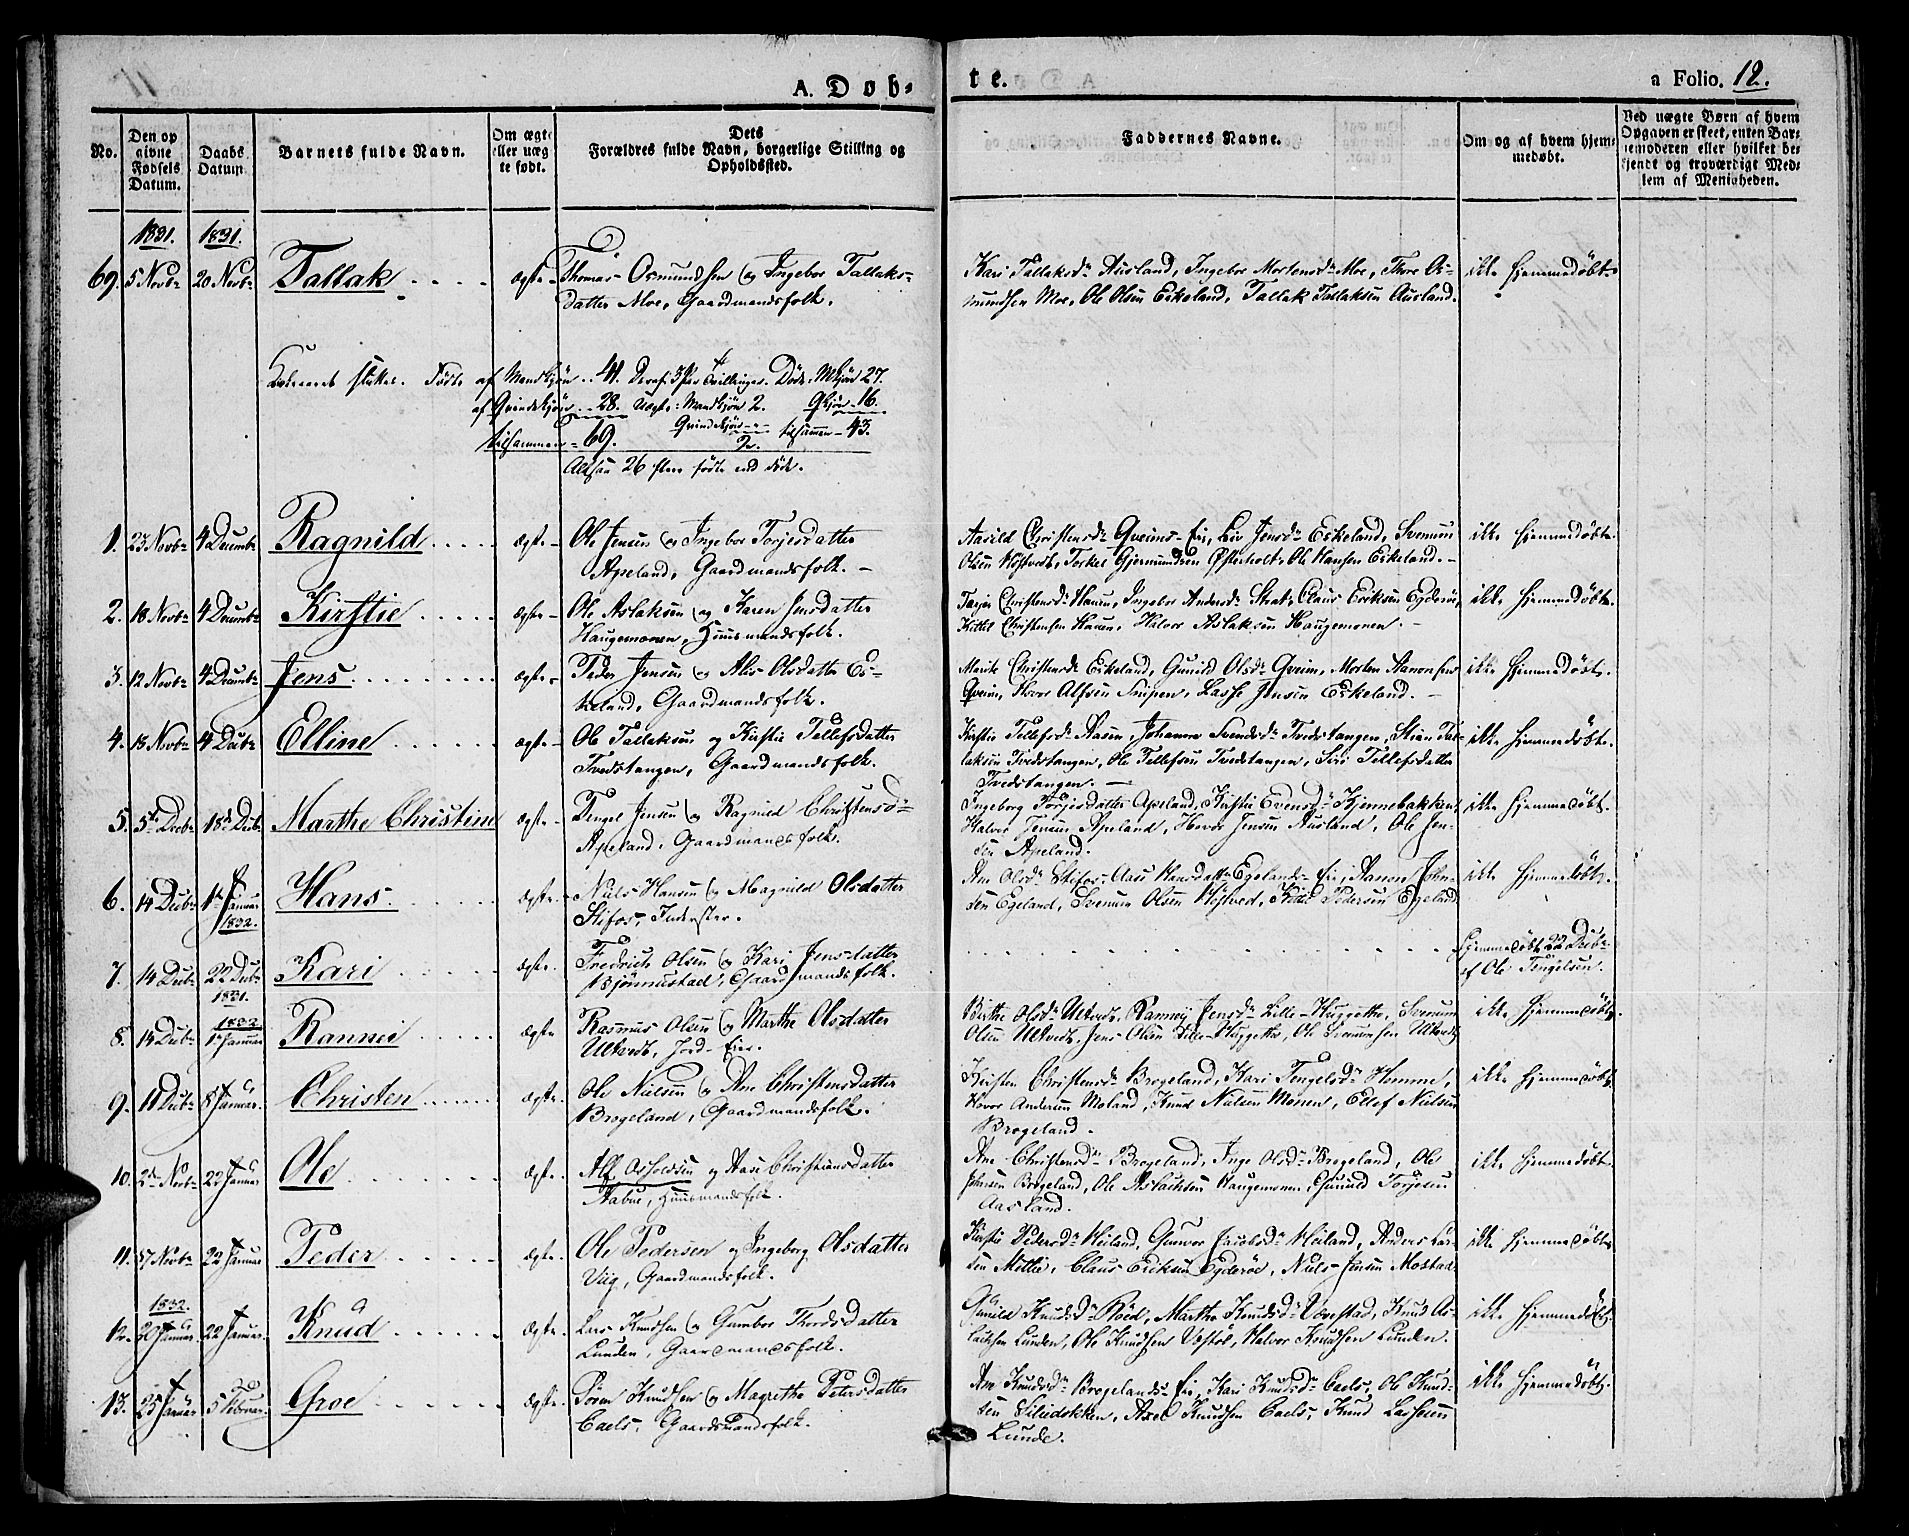 A. Døb-
te.
a Folio. 12.
No.
Den op
givne
Fødsels
Datum.
Daabs
Datum
Barnets fulde Navn.
Om ægte
eller uæg
te født.
Dets
Forældres fulde Navn, borgerlige Stilling og
Opholdssted.
Faddernes Navne.
Om og af hvem hjem-
medøbt.
Ved uægte Børn af hvem
Opgaven er skeet, enten Bar-
nemoderen eller hvilket be
kjendt og troværdigt Med-
lem af Menigheden.
1831. 1831.
69. 5 Novbr 20 Novbr Tallak ægte Thomas Osmundsen og Ingebor Tallaks-
datter Moe, Gaardmandsfolk.
Kari Tallaksdr Ausland, Ingebor Mortensdr Moe, Thore Os-
mundsen Moe, Ole Olsen Eskeland, Tallak Tallaksen Ausland.
ikke hjemmedøbt
Kirkeaaret sluttet. Fødte af Mandkjøn .. 41. Deraf 3 Par Tvillinger. Døde. Mkjøn 27.
af Qvindekjøn .. 28. Uægte: Mandkjøn 2. Qkjøn 16.
tilsammen 69. Qvindekjøn - " - tilsammen 43.
2.
Altsaa 26 flere fødte end døde.
1. 23 Novbr 4 Decembr Ragnild ægte Ole Jensen og Ingebor Torjesdatter
Apeland, Gaardmandsfolk.
Aasild Christensdr Qveims-Eie, Liv Jensdr Eskeland, Svenum
Olsen Høstvedt, Torkel Gjermundsen Østerholt, Ole Hansen Eskeland.
ikke hjemmedøbt.
2. 18 Novbr 4 Decembr Kirstie ægte Ole Aslaksen og Karen Jensdatter
Haugemonen, Huusmandsfolk.
Tarjer Christensdr Hauen, Ingebor Andersdr Strat, Claus Eriksen Egderøe,
Kittel Christensen Hauen, Halvor Aslaksen Haugemonen.
ikke hjemmedøbt.
3. 12 Novbr 4 Decembr Jens ægte Peder Jensen og Alis Olsdatter Es-
keland, Gaardmandsfolk.
Marite Christensdr Eskeland, Gunild Olsdr Qveim, Morten Aanonsen
Qveim, Hovor Alfsen Snipen, Lasse Jensen Eskeland.
ikke hjemmedøbt.
4. 15 Novbr 4 Decbr Elline ægte Ole Tallaksen og Kirstie Tellefsdatter
Tvedstangen, Gaardmandsfolk.
Kirstie Tellefsdr Aasen, Johanne Svendsdr Tvedstangen, Stian Tal-
laksen Tvedstangen, Ole Tellefsen Tvedstangen, Siri Tellefsdatter
Tvedstangen.
ikke hjemmedøbt.
5. 5te Decbr 18de Decbr Marthe Christine ægte Tengel Jensen og Ragnild Christensdr
Apeland, Gaardmandsfolk.
Ingeborg Torjesdatter Apeland, Kirstie Evensdr Kjennebakken,
Halvor Jensen Apeland, Hovor Jensen Ausland, Ole Jen-
sen Apeland.
ikke hjemmedøbt.
6. 14 Decbr 1ste Januar
1832. Hans ægte Niels Hansen og Magnild Olsdatter
Stifos, Inderster.
Ane Olsdr Stifos, Aase Hansdatter Egelands-Eie, Aanon John-
sen Egeland, Svenum Olsen Høstved, Knud Pedersen Egeland.
ikke hjemmedøbt.
7. 14 Decbr 22 Decbr
1831. Kari ægte Fredrich Olsen og Kari Jensdatter
Bjønnustad, Gaardmandsfolk.
hjemmedøbt 22 Decbr
af Ole Tengelsen.
8. 14 Decbr 1832
1ste Januar Rannei ægte Rasmus Olsen og Marthe Olsdatter
Ultvedt, Jord-Eier.
Birthe Olsdr Ultvedt, Rannei Jensdr Lille-Huggethe, Svenum
Olsen Ultvedt, Jens Olsen Lille-Huggethe, Ole Svenumsen Ultvedt.
ikke hjemmedøbt.
9. 11 Decbr 8 Januar. Christen ægte Ole Nielsen og Ane Christensdatter
Brogeland, Gaardmandsfolk.
Kirsten Christensdr Brogeland, Kari Tengelsdr Homme,
Hovor Andersen Moland, Knud Nielsen Monen, Ellef Nielsen
Brogeland.
ikke hjemmedøbt
10. 2den Novbr 22 Januar Ole ægte Alf Osuldsen og Aase Christiansdatter
Huusmandsfolk.
Ane Christensdr Brogeland, Inge Olsdr Brogeland, Ole
Jensen Brogeland, Ole Aslachsen Haugemonen, Torjesen
Aasland.
ikke hjemmedøbt
11. 17 Novbr 22 Januar Peder ægte Ole Pedersen og Ingeborg Olsdatter
Viig, Gaardmandsfolk.
Kirstie Pedersdr Heiland, Gunvor Jacobsdr Heiland, Anders Lar-
sen Mættie, Claus Eriksen Egderøe, Niels Jensen Mostad
ikke hjemmedøbt
1832.
12. 20 Januar 22 Januar. Knud ægte Lars Knudsen og Gunbor Thordsdatter
Lunden, Gaardmandsfolk.
Gunild Knudsdr Røed, Marthe Knudsdr Ubestad, Knud As-
lachsen Lunden, Ole Knudsen Vestøl, Halvor Knudsen Lunden.
ikke hjemmedøbt.
13. 25 Januar 5 Februar. Groe ægte Søren Knudsen og Magrethe Petersdatter
Caels, Gaardmandsfolk.
Ane Knudsdr Brogelands-Eie, Kari Knudsdr Caels, Ole Knud-
sen Axel Knudsen Caels, Knud Larsen
Lunde.
ikke hjemmedøbt.